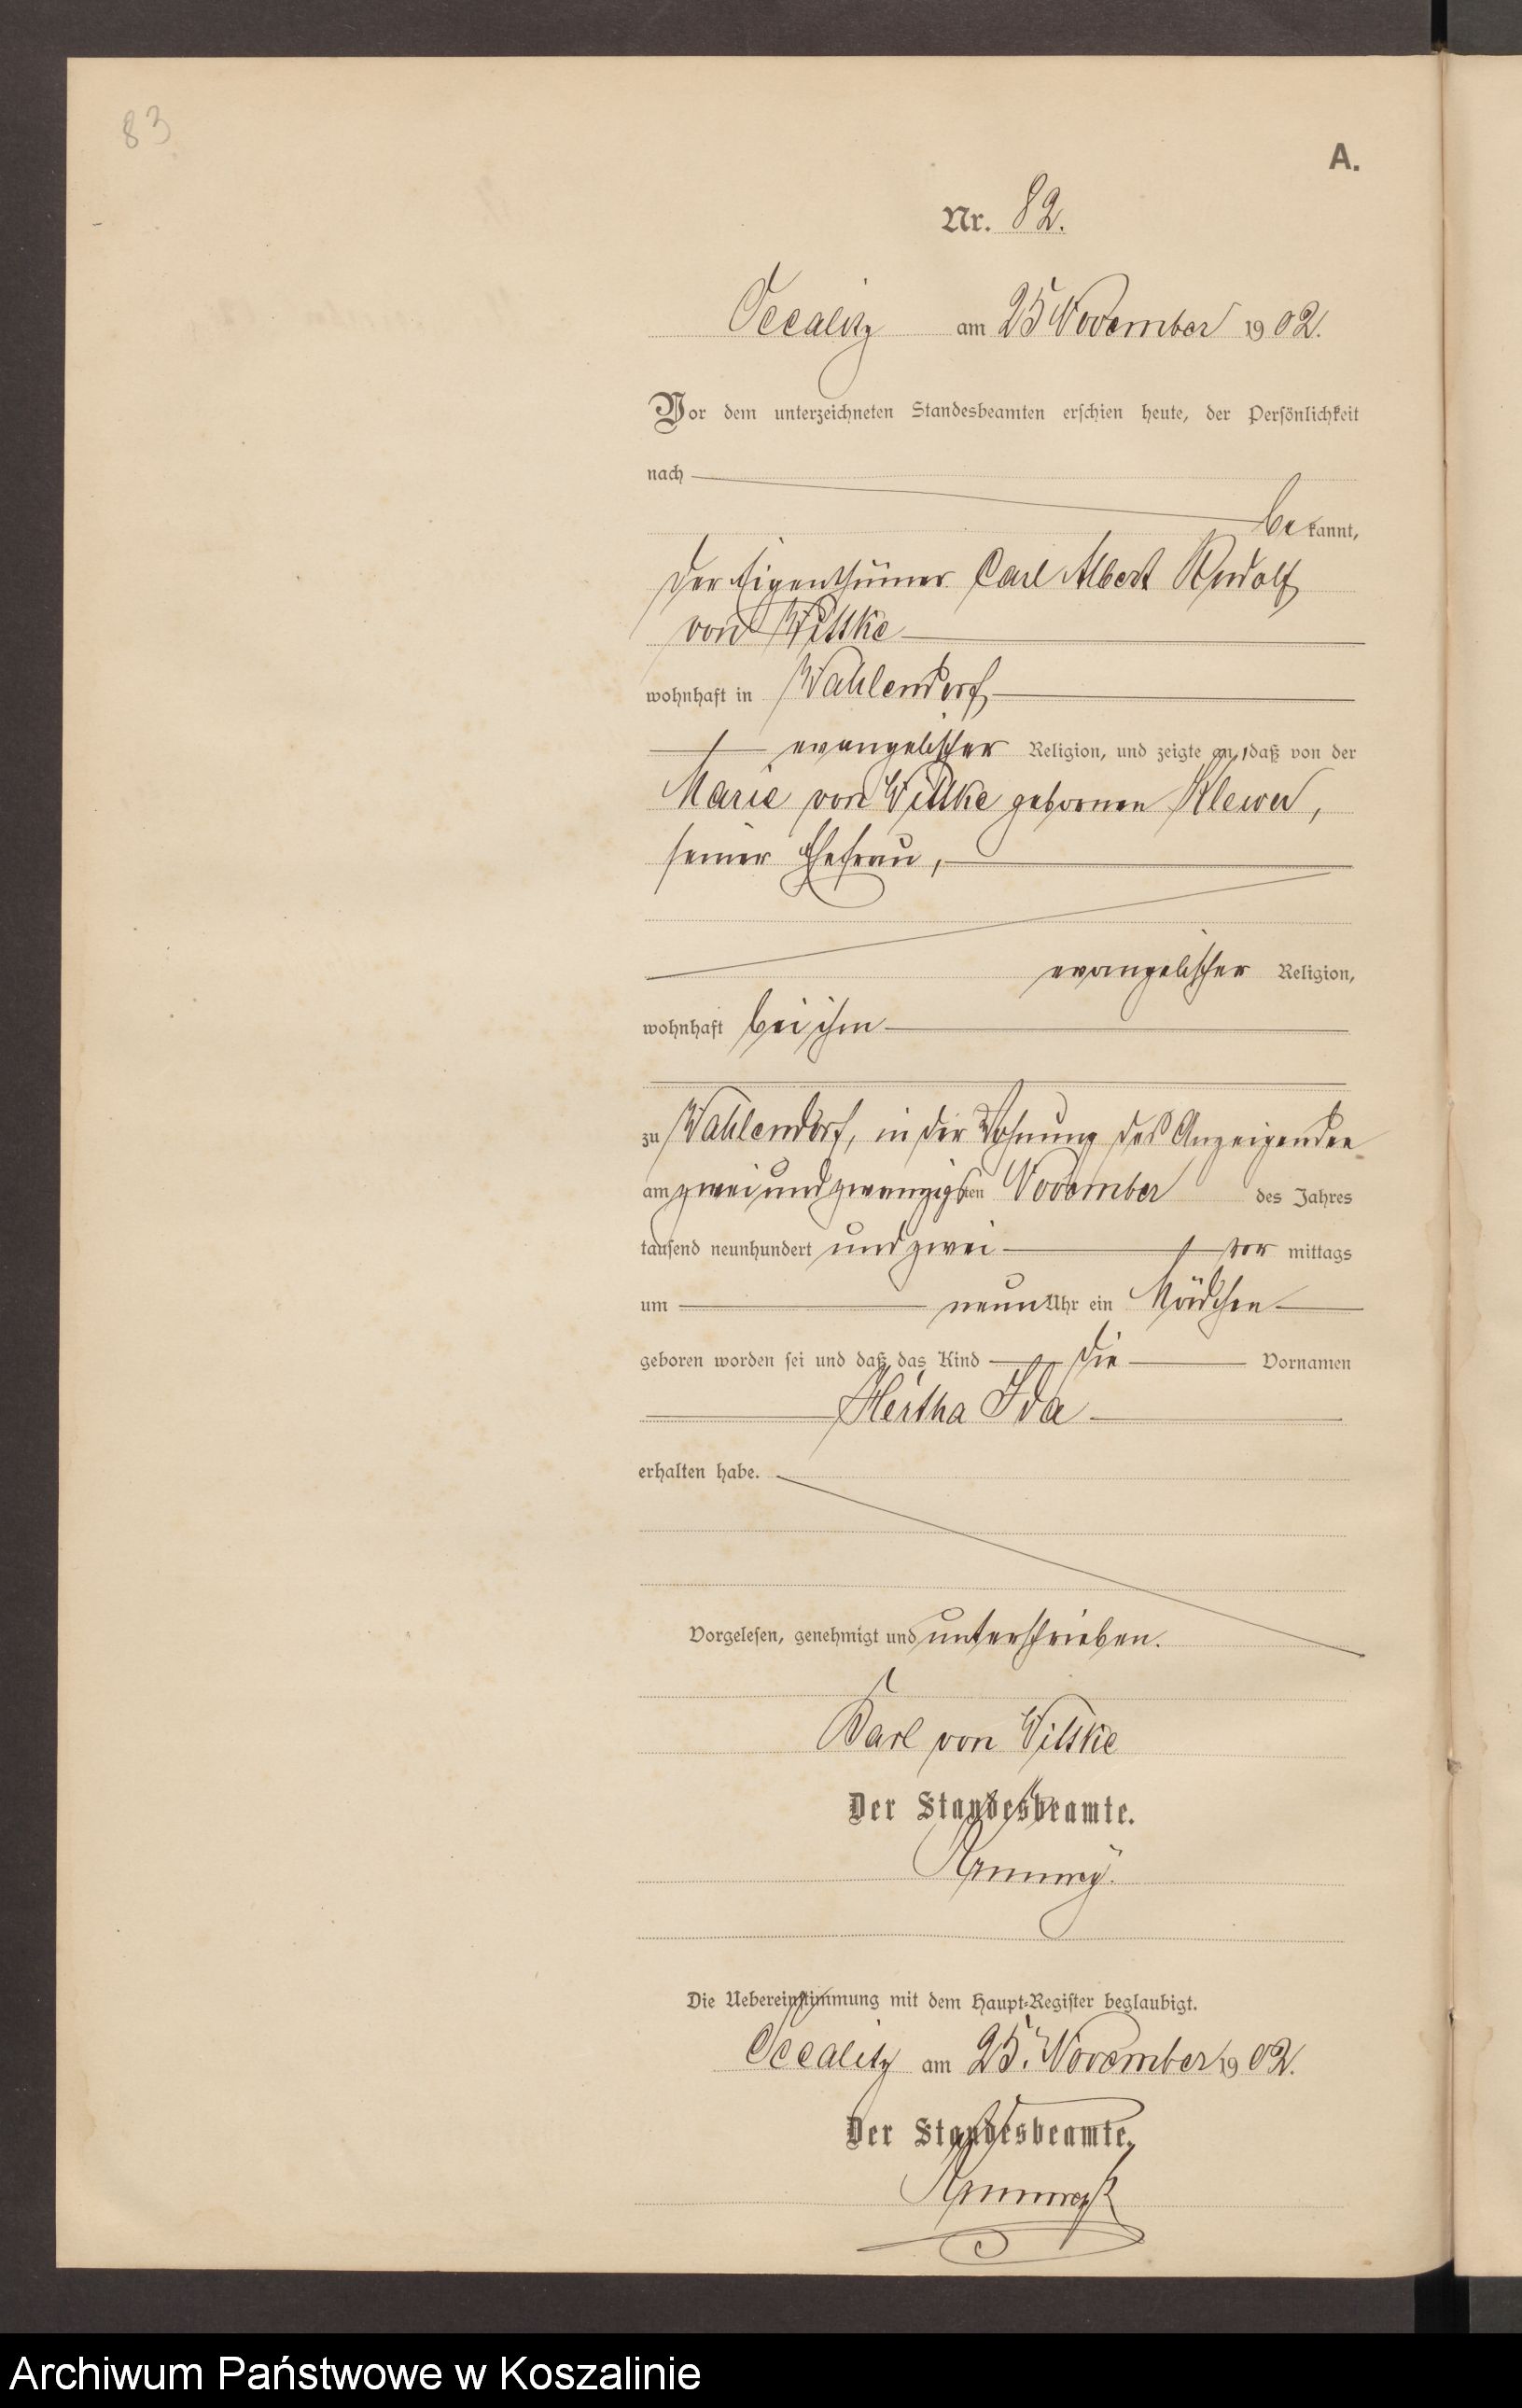 83
A.
Nr. 82.
Occalitz am 25 November 1902.
Vor dem unterzeichneten Standesbeamten erschien heute, der Persönlichkeit
nach
bekannt,
der Eigenthümer Carl Albert Rudolf
von Wittke
wohnhaft in Wahlendorf
evangelischer Religion, und zeigte an, daß von der
Marie von Wittke gebornen Klewer,
seiner Ehefrau,
evangelischer Religion,
wohnhaft bei ihm
zu Wahlendorf, in der Wohnung des Anzeigenden
am zwei und zwanzigsten November des Jahres
tausend neunhundert und zwei vor mittags
um neun Uhr ein Mädchen
geboren worden sei und daß das Kind die Vornamen
Hertha Ida
erhalten habe.
Vorgelesen, genehmigt und unterschrieben.
Karl von Wittke
Der Standesbeamte.
Die Uebereinstimmung mit dem Haupt-Register beglaubigt.
Occalitz am 25. November 1902.
Der Standesbeamte.
Archiwum Państwowe w Koszalinie